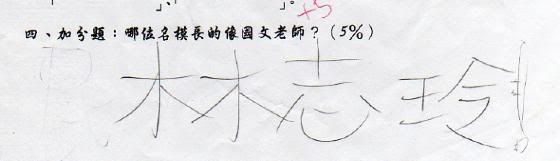 +5
四、加分題：哪位名模長的像國文老師？(5%)
林志玲!